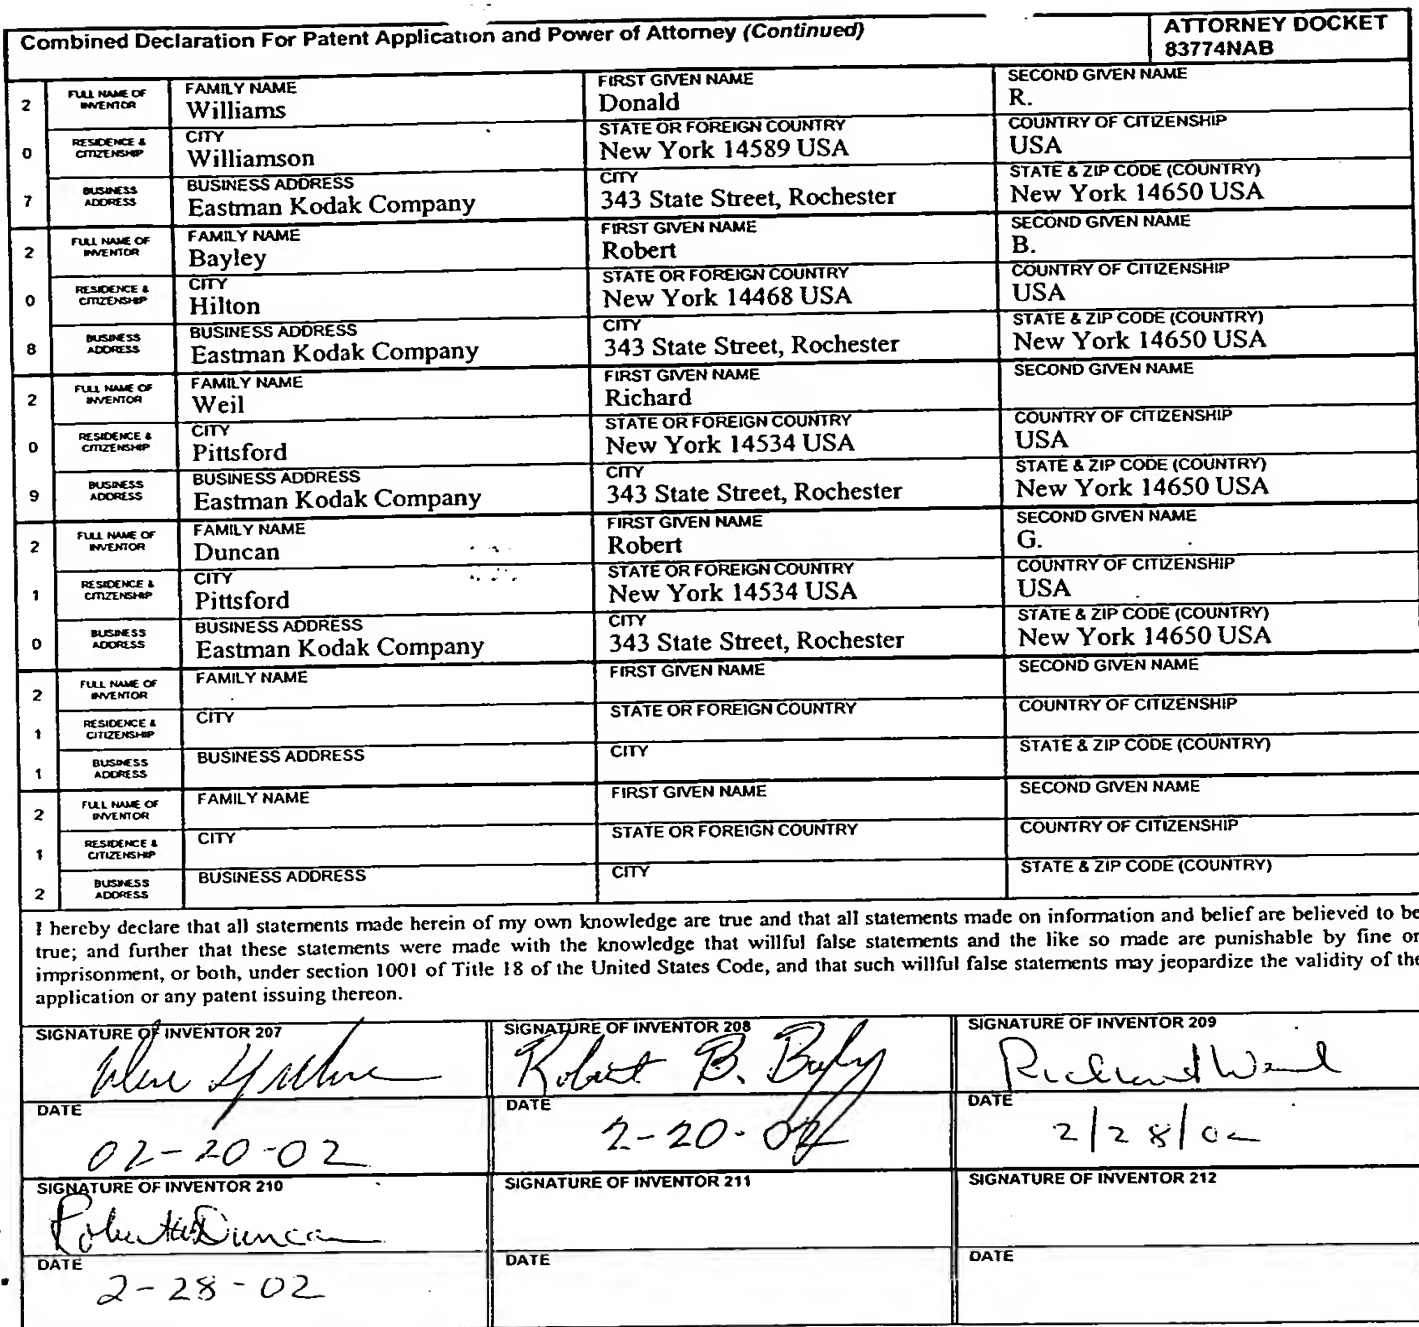 Combined Declaration For Patent Application and Power of Attorney (Continued)
ATTORNEY DOCKET
83774NAB
2 FULL NAME OF INVENTOR FAMILY NAME Williams FIRST GIVEN NAME Donald SECOND GIVEN NAME R.
0 RESIDENCE & CITIZENSHIP CITY Williamson STATE OR FOREIGN COUNTRY New York 14589 USA COUNTRY OF CITIZENSHIP USA
7 BUSINESS ADDRESS BUSINESS ADDRESS Eastman Kodak Company CITY 343 State Street, Rochester STATE & ZIP CODE (COUNTRY) New York 14650 USA
2 FULL NAME OF INVENTOR FAMILY NAME Bayley FIRST GIVEN NAME Robert SECOND GIVEN NAME B.
0 RESIDENCE & CITIZENSHIP CITY Hilton STATE OR FOREIGN COUNTRY New York 14468 USA COUNTRY OF CITIZENSHIP USA
8 BUSINESS ADDRESS BUSINESS ADDRESS Eastman Kodak Company CITY 343 State Street, Rochester STATE & ZIP CODE (COUNTRY) New York 14650 USA
2 FULL NAME OF INVENTOR FAMILY NAME Weil FIRST GIVEN NAME Richard SECOND GIVEN NAME
0 RESIDENCE & CITIZENSHIP CITY Pittsford STATE OR FOREIGN COUNTRY New York 14534 USA COUNTRY OF CITIZENSHIP USA
9 BUSINESS ADDRESS BUSINESS ADDRESS Eastman Kodak Company CITY 343 State Street, Rochester STATE & ZIP CODE (COUNTRY) New York 14650 USA
2 FULL NAME OF INVENTOR FAMILY NAME Duncan FIRST GIVEN NAME Robert SECOND GIVEN NAME G.
1 RESIDENCE & CITIZENSHIP CITY Pittsford STATE OR FOREIGN COUNTRY New York 14534 USA COUNTRY OF CITIZENSHIP USA
0 BUSINESS ADDRESS BUSINESS ADDRESS Eastman Kodak Company CITY 343 State Street, Rochester STATE & ZIP CODE (COUNTRY) New York 14650 USA
2 FULL NAME OF INVENTOR FAMILY NAME FIRST GIVEN NAME SECOND GIVEN NAME
1 RESIDENCE & CITIZENSHIP CITY STATE OR FOREIGN COUNTRY COUNTRY OF CITIZENSHIP
1 BUSINESS ADDRESS BUSINESS ADDRESS CITY STATE & ZIP CODE (COUNTRY)
2 FULL NAME OF INVENTOR FAMILY NAME FIRST GIVEN NAME SECOND GIVEN NAME
1 RESIDENCE & CITIZENSHIP CITY STATE OR FOREIGN COUNTRY COUNTRY OF CITIZENSHIP
2 BUSINESS ADDRESS BUSINESS ADDRESS CITY STATE & ZIP CODE (COUNTRY)
I hereby declare that all statements made herein of my own knowledge are true and that all statements made on information and belief are believed to be
true; and further that these statements were made with the knowledge that willful false statements and the like so made are punishable by fine or
imprisonment, or both, under section 1001 of Title 18 of the United States Code, and that such willful false statements may jeopardize the validity of the
application or any patent issuing thereon.
SIGNATURE OF INVENTOR 207 SIGNATURE OF INVENTOR 208 SIGNATURE OF INVENTOR 209
Robert B. Bayley Richard Weil
DATE DATE DATE
02-20-02 2-20-02 2/28/02
SIGNATURE OF INVENTOR 210 SIGNATURE OF INVENTOR 211 SIGNATURE OF INVENTOR 212
Robert G Duncan
DATE DATE DATE
2-28-02